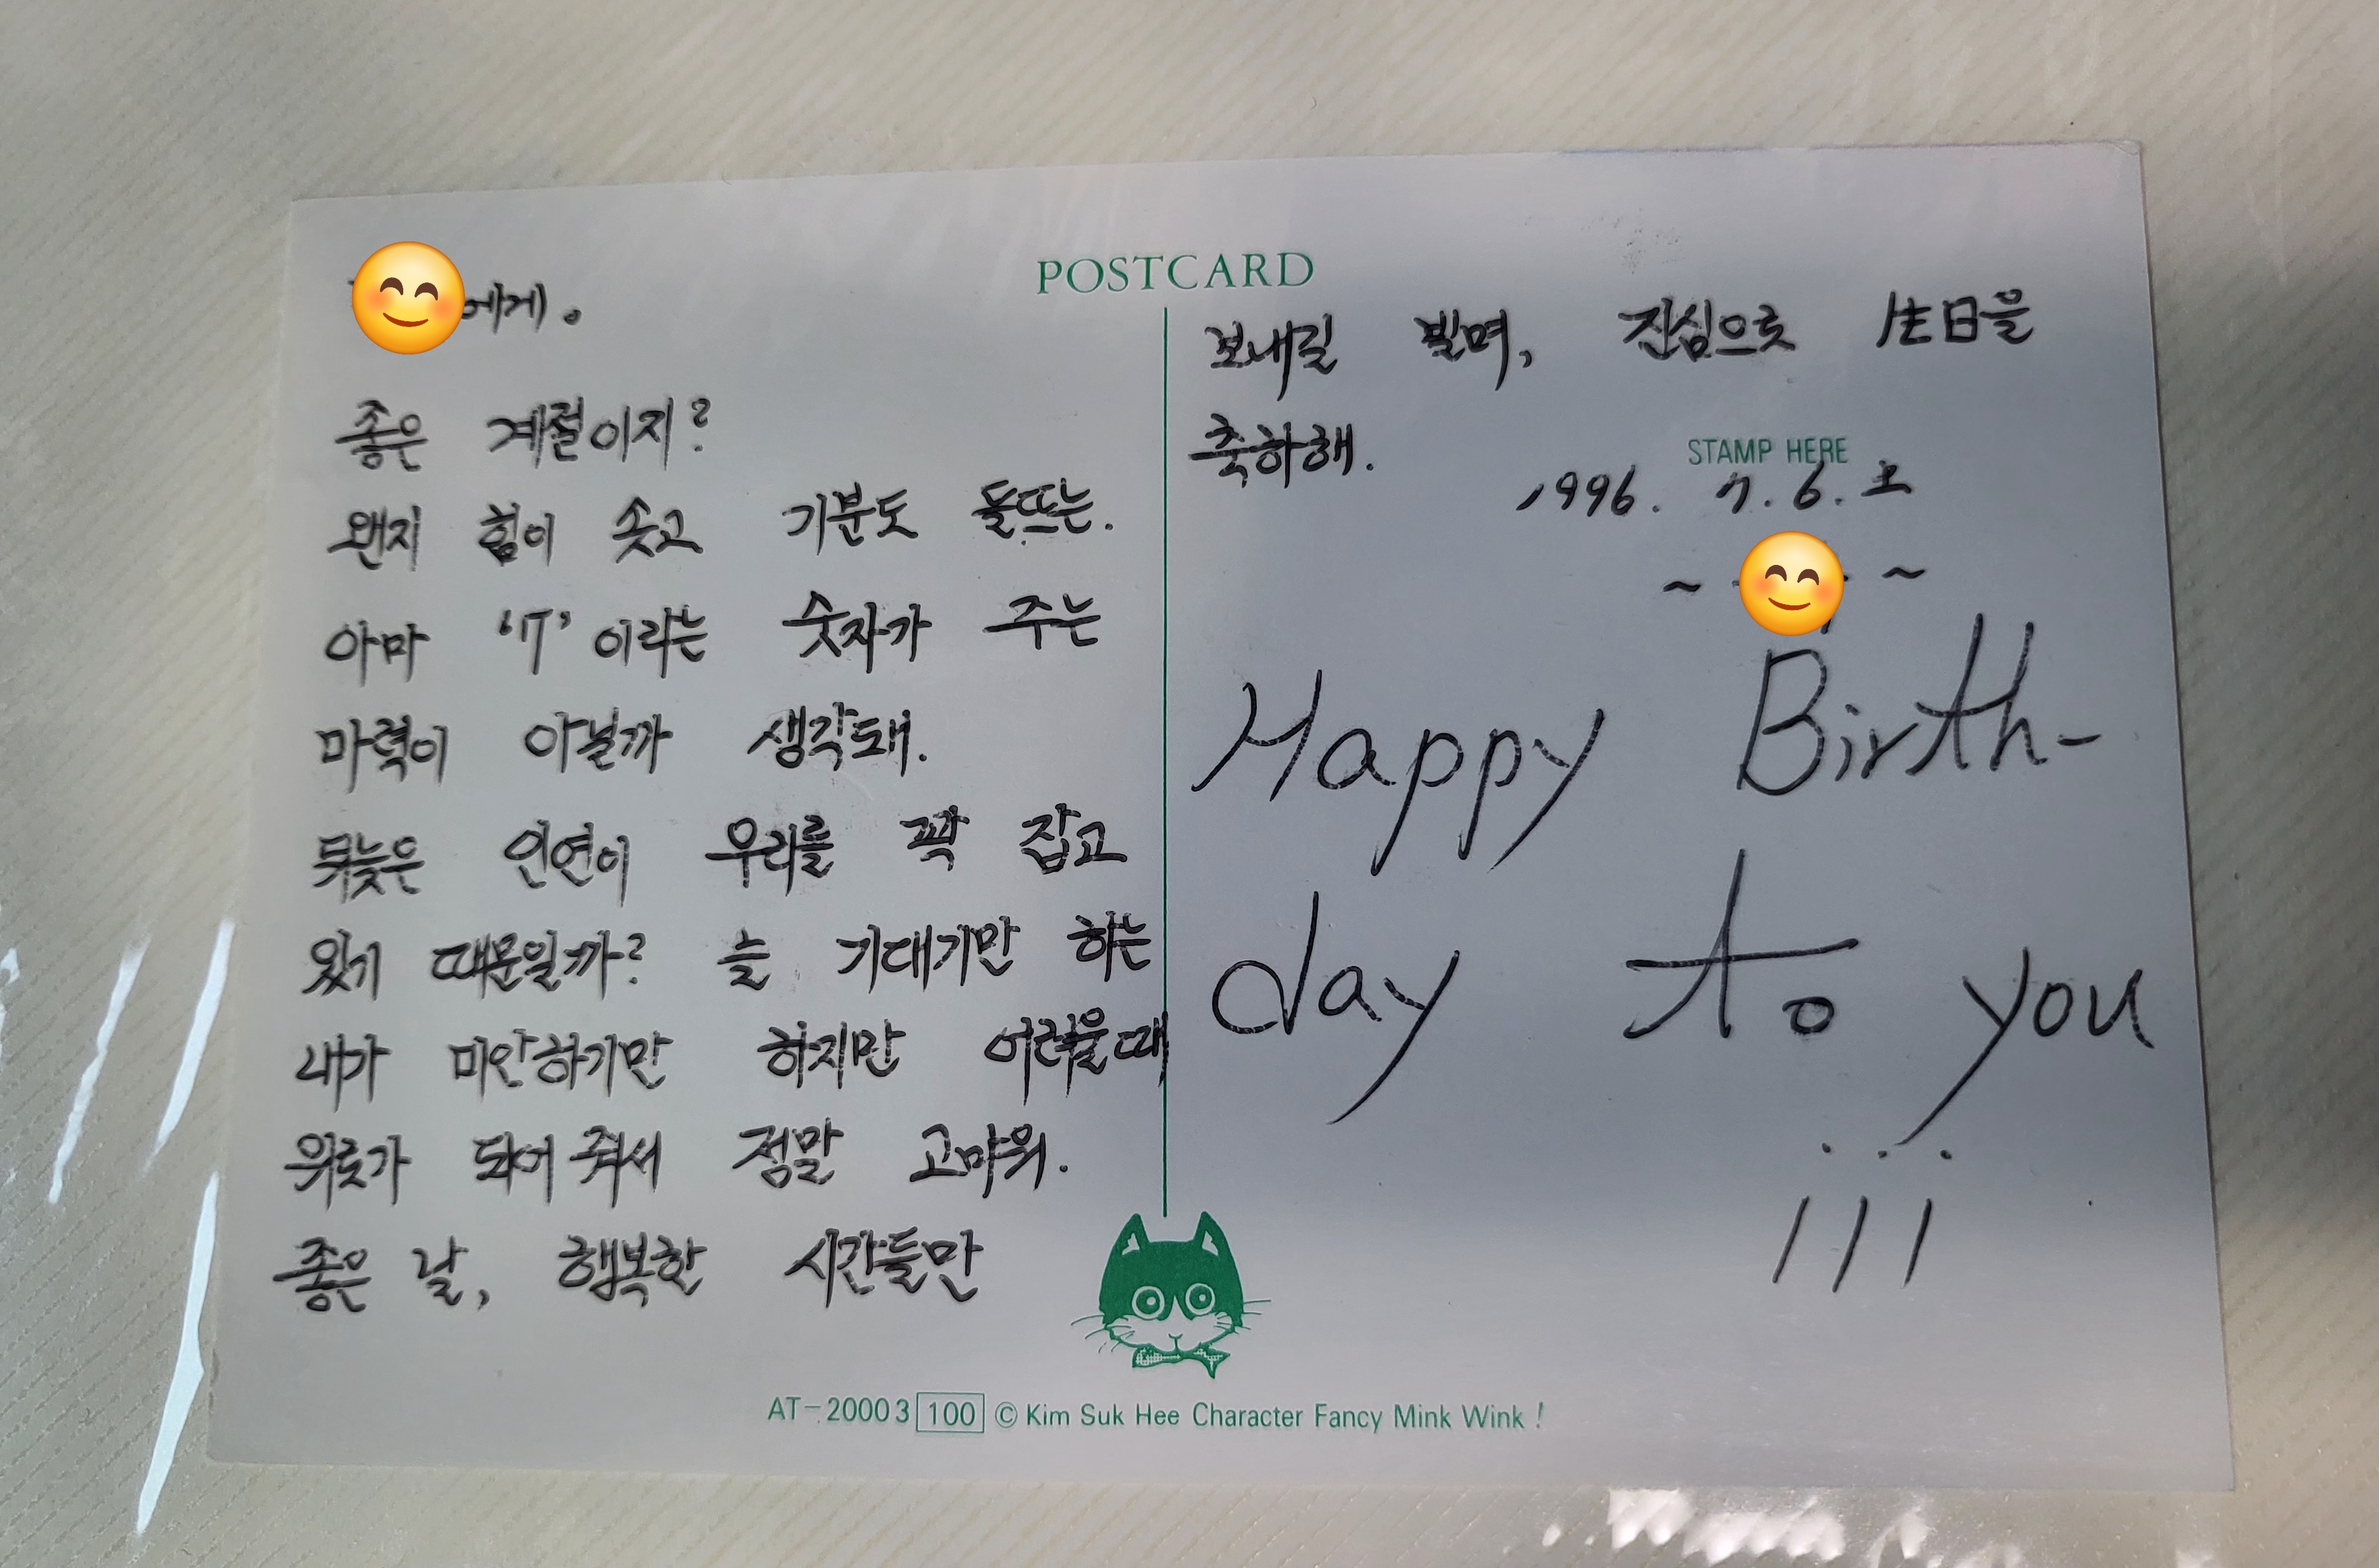 POSTCARD
에게.
좋은 계절이지?
왠지 힘이 솟고 기분도 들뜨는.
아마 '7' 이라는 숫자가 주는
마력이 아닐까 생각돼.
뒤늦은 인연이 우리를 꽉 잡고
있기 때문일까? 늘 기대기만 하는
내가 미안하기만 하지만 어려울때
위로가 되어 줘서 정말 고마워.
좋은 날, 행복한 시간들만
보내길 빌며, 진심으로 生日을
축하해.
STAMP HERE
1996. 7. 6. 土
~ ~
Happy Birth-
day to you
...
AT-20003 100 © Kim Suk Hee Character Fancy Mink Wink !